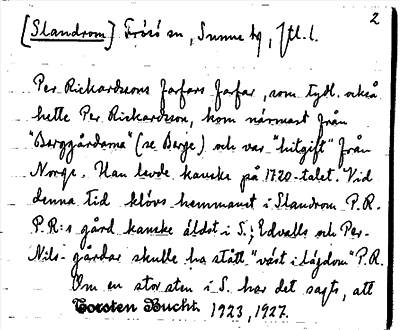 2
[Slandrom] Frösö sn, Sunne tg, Jtl. l.
Per Rickardssons farfars farfar, som tydl. också
hette Per Rickardsson, kom närmast från
"Berggårdarna" (se Berge) och var "hitgift" från
Norge. Han levde kanske på 1720-talet. Vid
denna tid klövs hemmanet i Slandrom P.R.
P.R:s gård kanske äldst i S.; Edvalls och Per-
Nils-gårdar skulle ha stått "väst i lägdom" P.R.
Om en stor sten i S. har det sagts, att
Torsten Bucht. 1923, 1927.